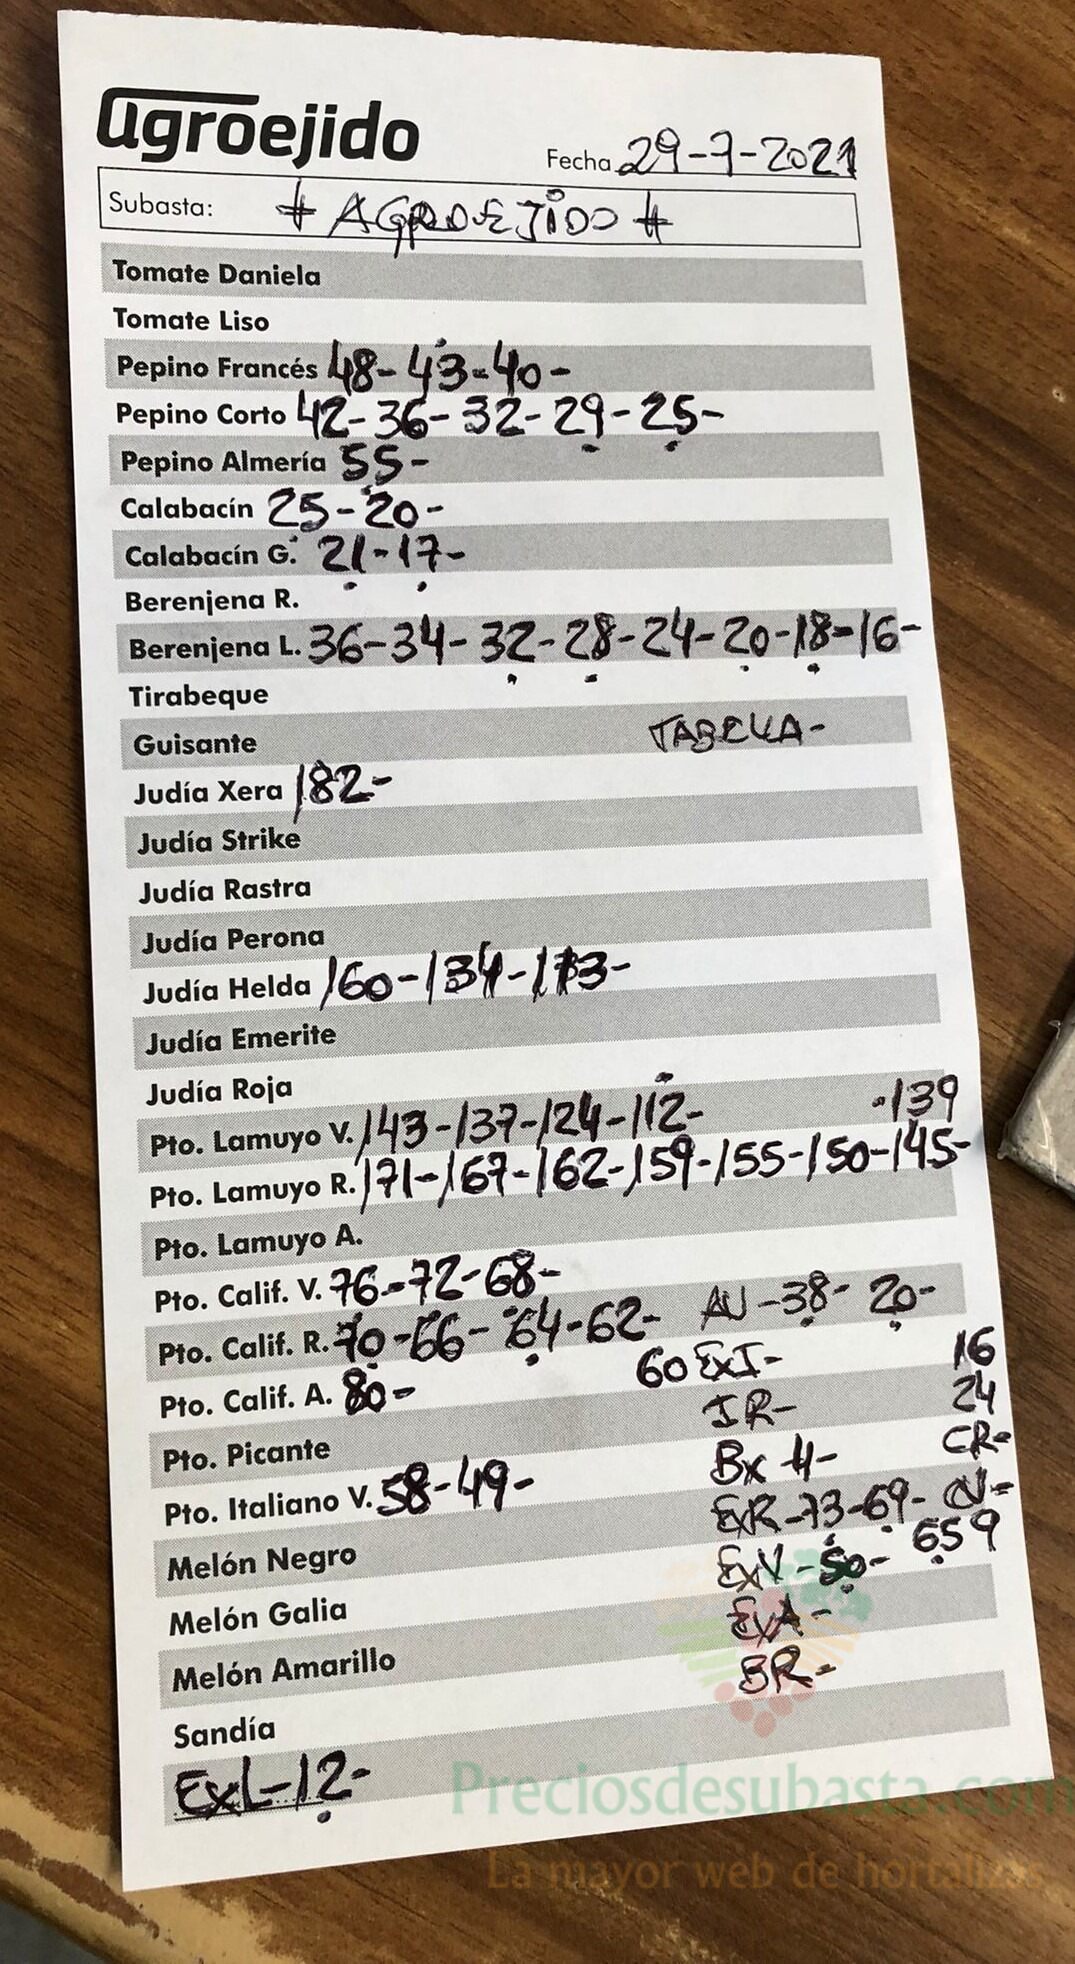 agroejido
Fecha 29-7-2021
Subasta: # AGROEJIDO #
Tomate Daniela
Tomate Liso
Pepino Francés 48-43-40-
Pepino Corto 42-36-32-29-25-
Pepino Almería 55-
Calabacín 25-20-
Calabacín G. 21-17-
Berenjena R.
Berenjena L. 36-34-32-28-24-20-18-16-
Tirabeque
Guisante TABELLA-
Judía Xera 182-
Judía Strike
Judía Rastra
Judía Perona
Judía Helda 160-134-113-
Judía Emerite
Judía Roja
Pto. Lamuyo V. 143-137-124-112- -139
Pto. Lamuyo R. 171-167-162-159-155-150-145-
Pto. Lamuyo A.
Pto. Calif. V. 76-72-68-
Pto. Calif. R. 70-66-64-62- AU-38- 20-
Pto. Calif. A. 80- 60 ExI- 16
Pto. Picante IR- 24
Pto. Italiano V. 58-49- Bx H- CR-
Melón Negro ExR-73-69-
Melón Galia ExV-50- 659
Melón Amarillo ExA-
Sandía BR-
ExL-12-
Preciosdesubasta.com
La mayor web de hortalizas